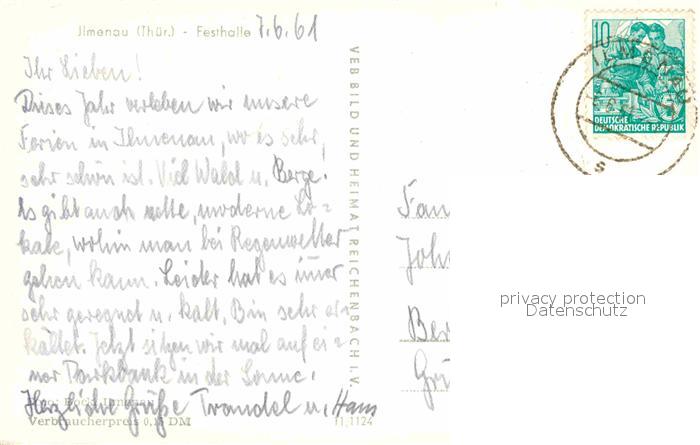 Jlmenau (Thür.) - Festhalle 7.6.61
Ihr Lieben!
Dieses Jahr verleben wir unsere
Ferien in Ilmenau, wo es sehr,
sehr schön ist. Viel Wald u. Berge.
Es gibt auch nette, moderne Lo=
kale, wohin man bei Regenwetter
gehen kann. Leider hat es immer
sehr geregnet u. kalt. Bin sehr er=
kältet. Jetzt sitzen wir mal auf ei=
ner Parkbank in der Sonne.
Herzliche Grüße Traudel u. Hans
Verbraucherpreis 0,15 DM
f1,1124
VEB BILD UND HEIMAT REICHENBACH I. V.
10
DEUTSCHE
DEMOKRATISCHE REPUBLIK
ILMENAU
s
Fam
Joh
Ber
Grü
privacy protection
Datenschutz